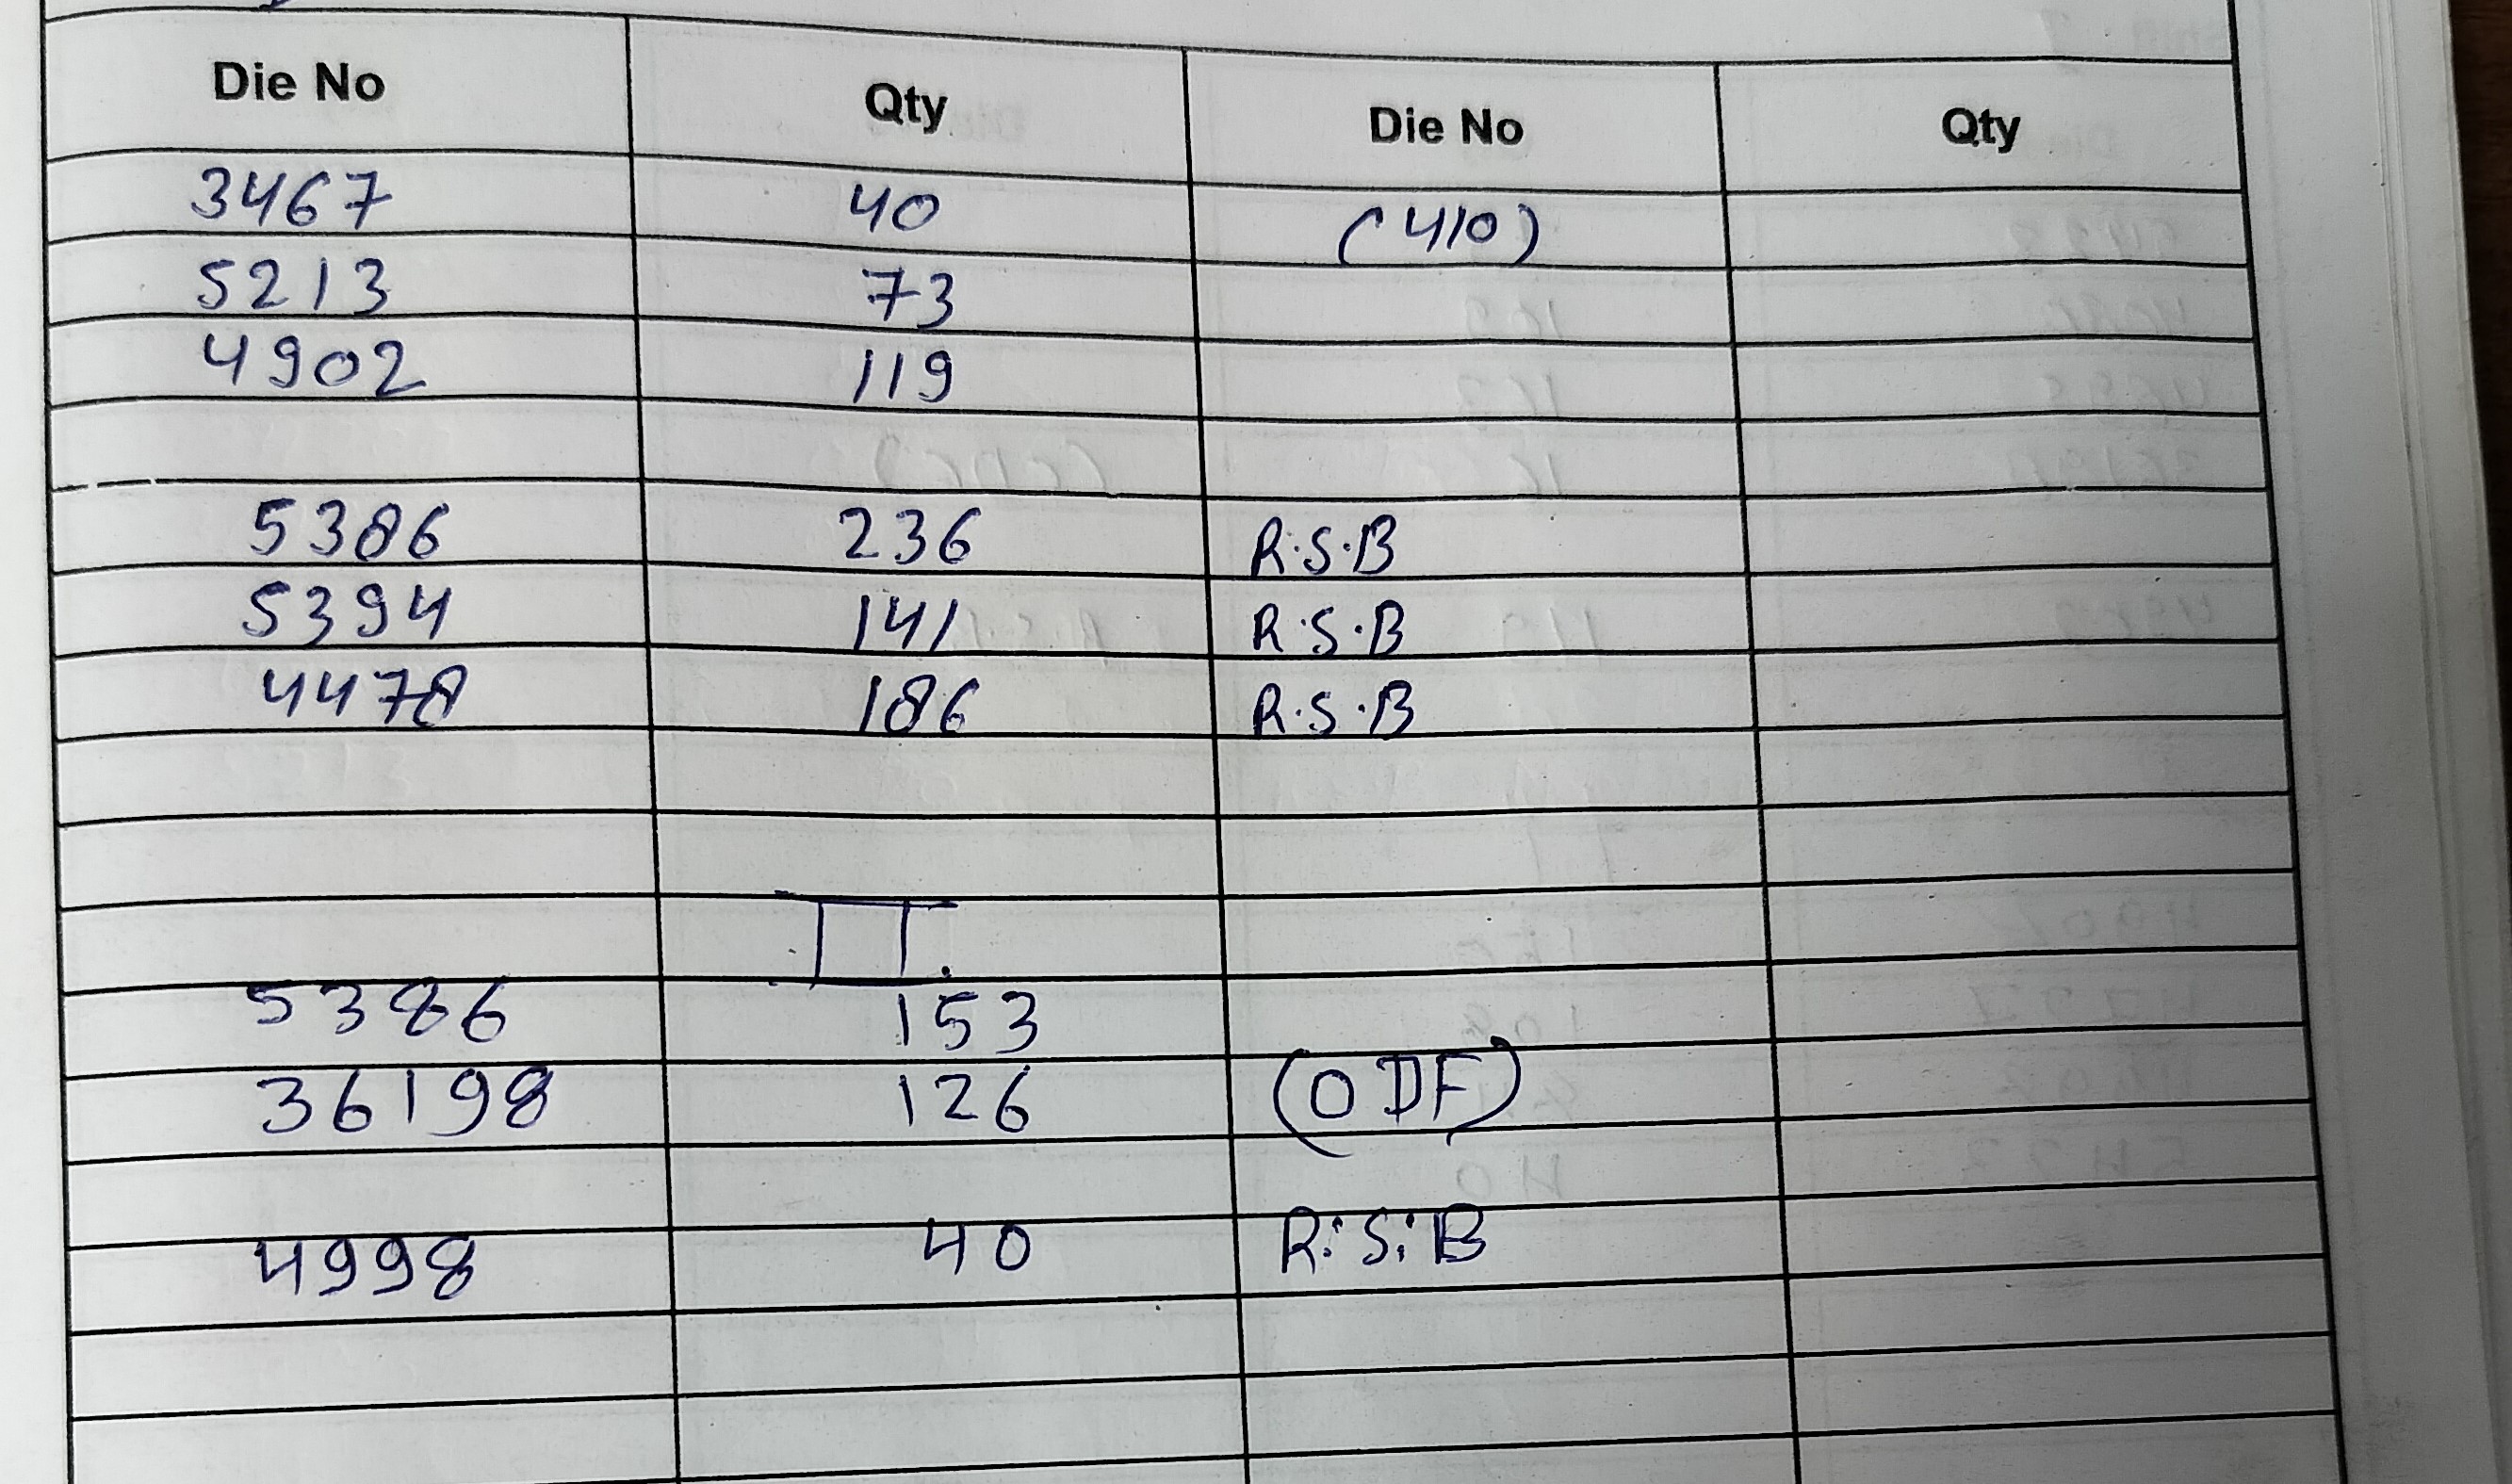 Die No Qty Die No Qty
3467 40 (410)
5213 73
4902 119
5386 236 R.S.B
5394 141 R.S.B
4478 186 R.S.B
II.
5386 153
36198 126 (ODF)
4998 40 R.S.B